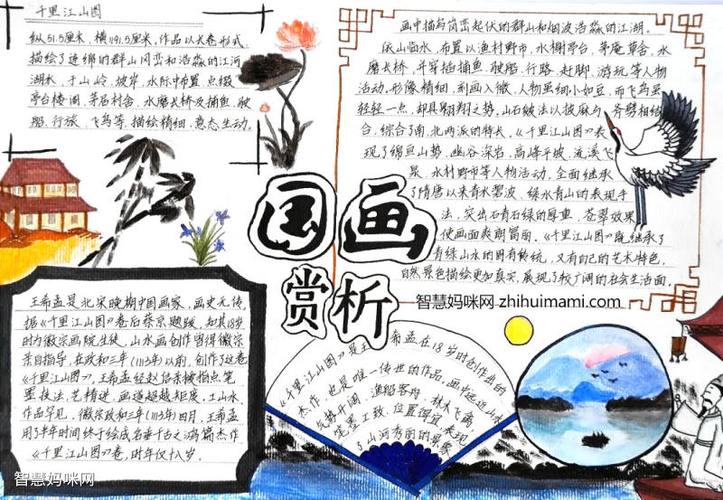 千里江山图
纵51.5厘米，横1191.5厘米，作品以长卷形式，
描绘了连绵的群山冈峦和浩淼的江河
湖水，于山岭、坡岸、水际中布置、点缀
亭台楼阁、茅居村舍、水磨长桥及捕鱼、驶
船、行旅、飞鸟等，描绘精细，意态生动。
画中描写岗峦起伏的群山和烟波浩淼的江湖。
依山临水，布置以渔村野市、水榭亭台、茅庵草舍、水
磨长桥，并穿插捕鱼、驶船、行路、赶脚、游玩等人物
活动。形像精细，刻画入微，人物虽细小如豆，而飞鸟虽
轻轻一点，却具翱翔之势。山石皴法以披麻与
斧劈相结
合，综合了南、北两派的特长。《千里江山图》表
现了绵亘山势、幽谷深岩、高峰平坡、流溪飞
泉、水村野市等人物活动，全面继承
了隋唐以来青水碧波、绿水青山的表现手
法，突出石青石绿的厚重、苍翠效果
使画面爽朗富丽。《千里江山图》既继承了
青绿山水的固有传统，又有自己的艺术特色，
自然景色描绘更加真实，展现了较广阔的社会生活面。
国画
赏析
智慧妈咪网 zhihuimami.com
王希孟是北宋晚期中国画家，画史无传，
据《千里江山图》卷后蔡京题跋，知其18岁
时为徽宗画院生徒，山水画创作曾得徽宗
亲自指导，在政和三年（1113年）以前，创作了这卷
《千里江山图》。王希孟经赵佶亲授指点笔
墨技法，艺精进，画遂超越矩度。工山水，
作品罕见。徽宗政和三年（1113年）四月，王希孟
用了半年时间终于绘成名垂千古之鸿篇杰作
《千里江山图》卷，时年仅十八岁。
《千里江山图》是王希孟在18岁时创作出的
杰作，也是唯一传世的作品。画中远近山水
气势开阔，渔船客舟，林木飞禽
笔墨工致，位置得宜，表现
了山河秀丽的景象
智慧妈咪网